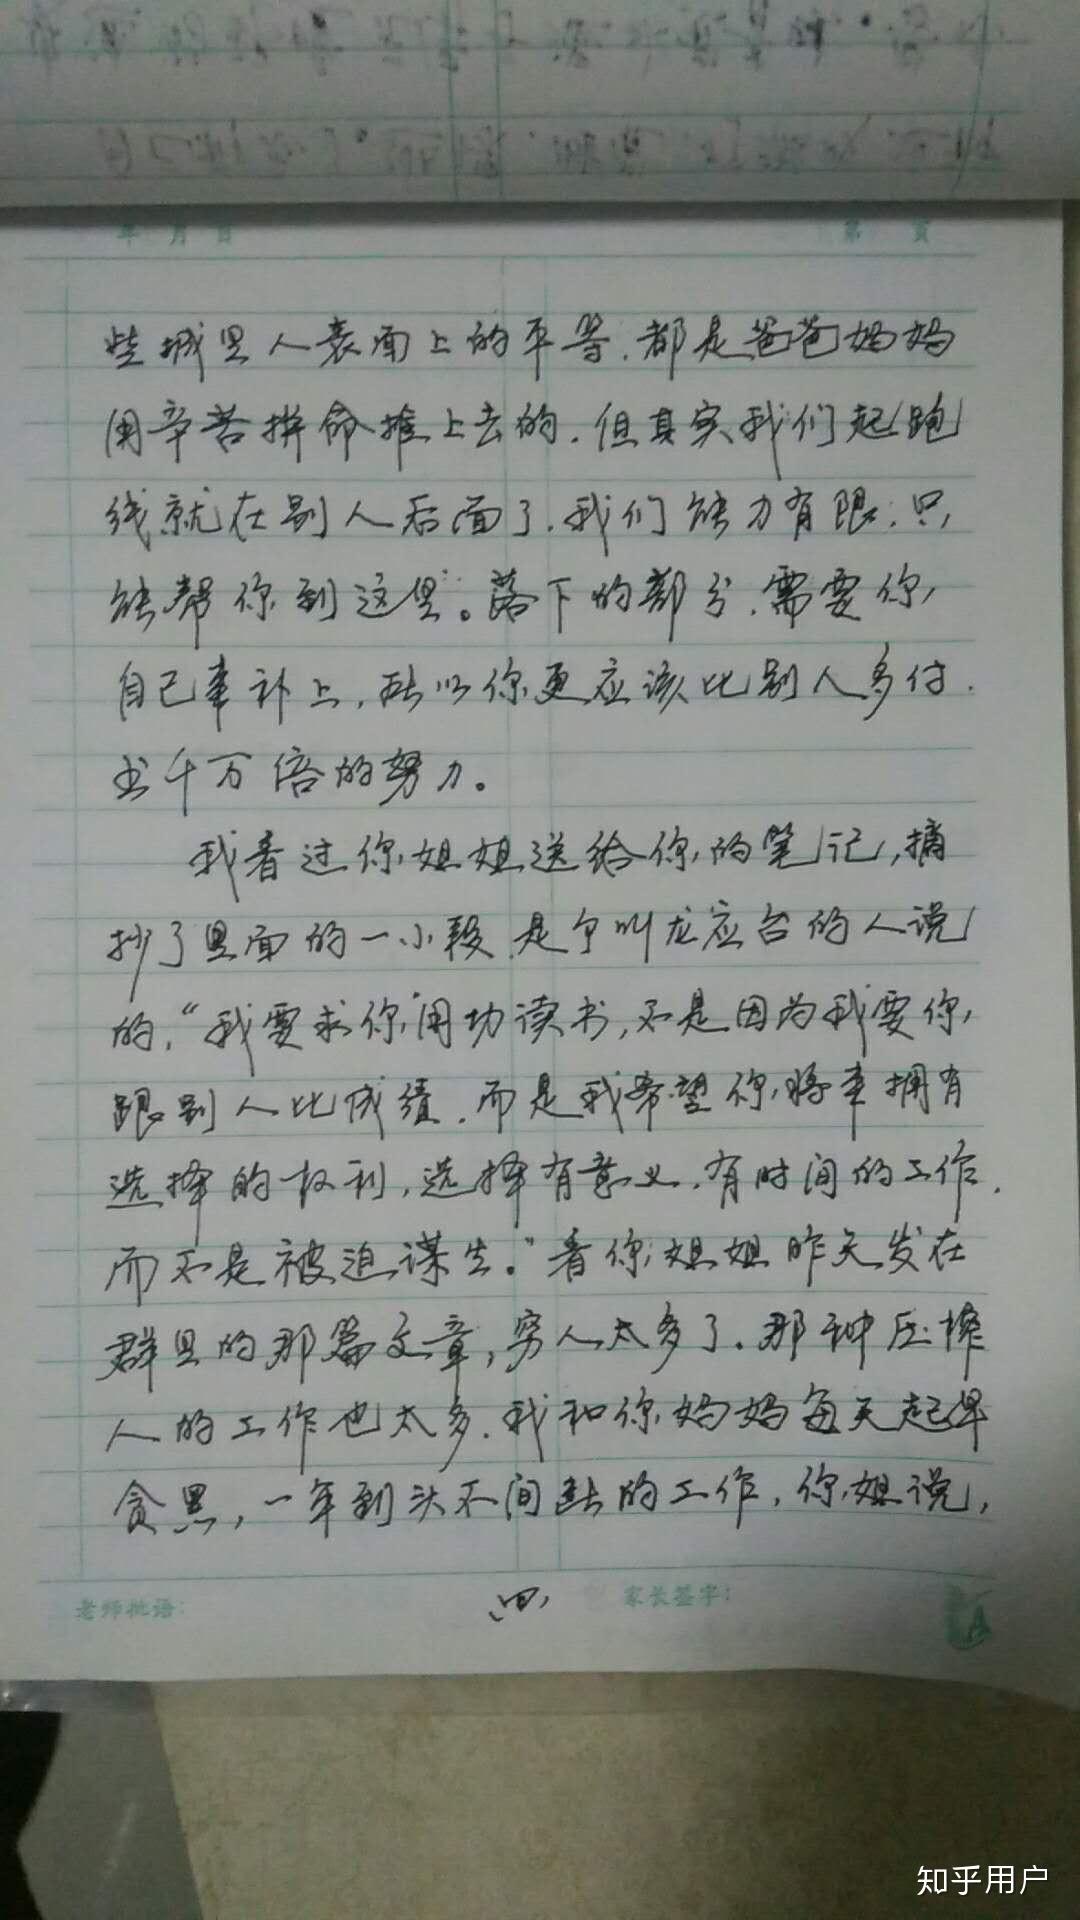 年 月 日 第 页
些城里人表面上的平等，都是爸爸妈妈
用辛苦拼命推上去的，但其实我们起跑
线就在别人后面了，我们能力有限，只
能帮你到这里。落下的部分，需要你
自己来补上，所以你更应该比别人多付
出千万倍的努力。
我看过你姐姐送给你的笔记，摘
抄了里面的一小段，是个叫龙应台的人说
的，“我要求你用功读书，不是因为我要你
跟别人比成绩，而是我希望你将来拥有
选择的权利，选择有意义，有时间的工作，
而不是被迫谋生。”看你姐姐昨天发在
群里的那篇文章，穷人太多了，那种压榨
人的工作也太多，我和你妈妈每天起早
贪黑，一年到头不间断的工作，你姐说，
老师批语： 四 家长签字：
知乎用户